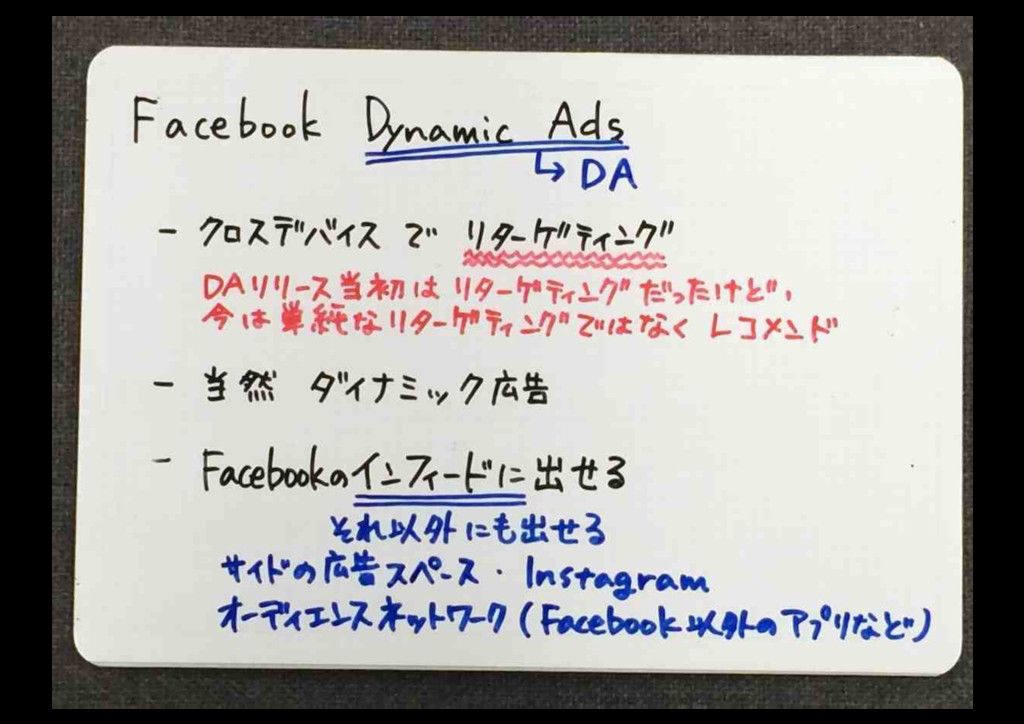 Facebook Dynamic Ads
↳ DA
- クロスデバイス で リターゲティング
DAリリース当初は リターゲティングだったけど、
今は単純なリターゲティングではなく レコメンド
- 当然 ダイナミック広告
- Facebookのインフィードに出せる
それ以外にも出せる
サイドの広告スペース・Instagram
オーディエンスネットワーク(Facebook以外のアプリなど)